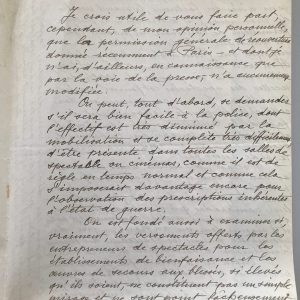 Je crois utile de vous faire part,
cependant, de mon opinion personnelle,
que la permission générale de réouverture
donnée récemment à Paris - et dont je
n'ai, d'ailleurs, eu connaissance que
par la voie de la presse, n'a aucunement
modifiée.
On peut, tout d'abord, se demander
s'il sera bien facile à la police, dont
l'effectif est très diminué par la
mobilisation et se complète très difficilement
d'être présente dans toutes les salles de
spectacle ou cinémas, comme il est de
règle en temps normal et comme cela
s'imposerait davantage encore pour
l'observation des prescriptions inhérentes
à l'état de guerre.
On est aussi à examiner si,
vraiment, les versements offerts, par les
entrepreneurs de spectacles pour les
établissements de bienfaisance et les
œuvres de secours aux blessés, si élevés
qu'ils soient, ne constituent pas un simple
mirage et ne sont point